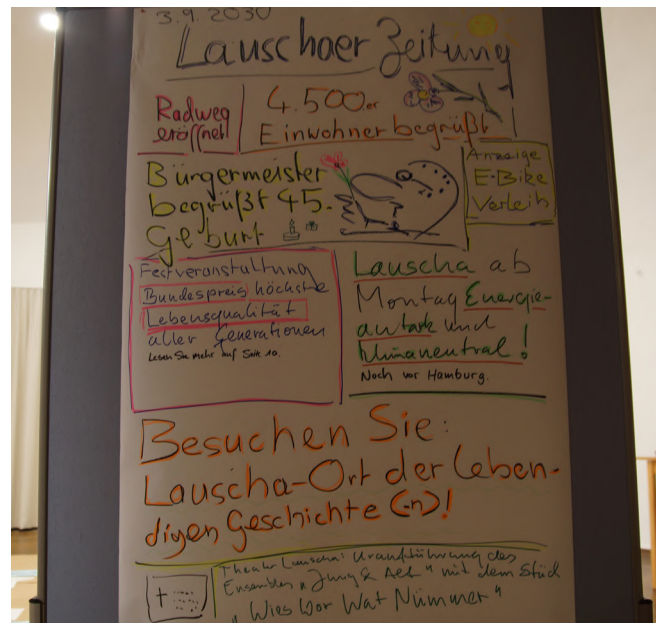 3.9.2030
Lauschaer Zeitung
Radweg
eröffnet
4.500er
Einwohner begrüßt!
Bürgermeister
begrüßt 45.
Geburt
Anzeige
E-Bike
Verleih
Festveranstaltung
Bundespreis höchste
Lebensqualität
aller Generationen
Lesen Sie mehr auf Seite 10.
Lauscha ab
Montag Energie-
autark und
klimaneutral!
Noch vor Hamburg.
Besuchen Sie:
Lauscha-Ort der leben-
digen Geschichte (-n)!
Theater Lauscha: Uraufführung des
Ensembles "Jung & Alt" mit dem Stück
"Wies wor Wat Nümmer"